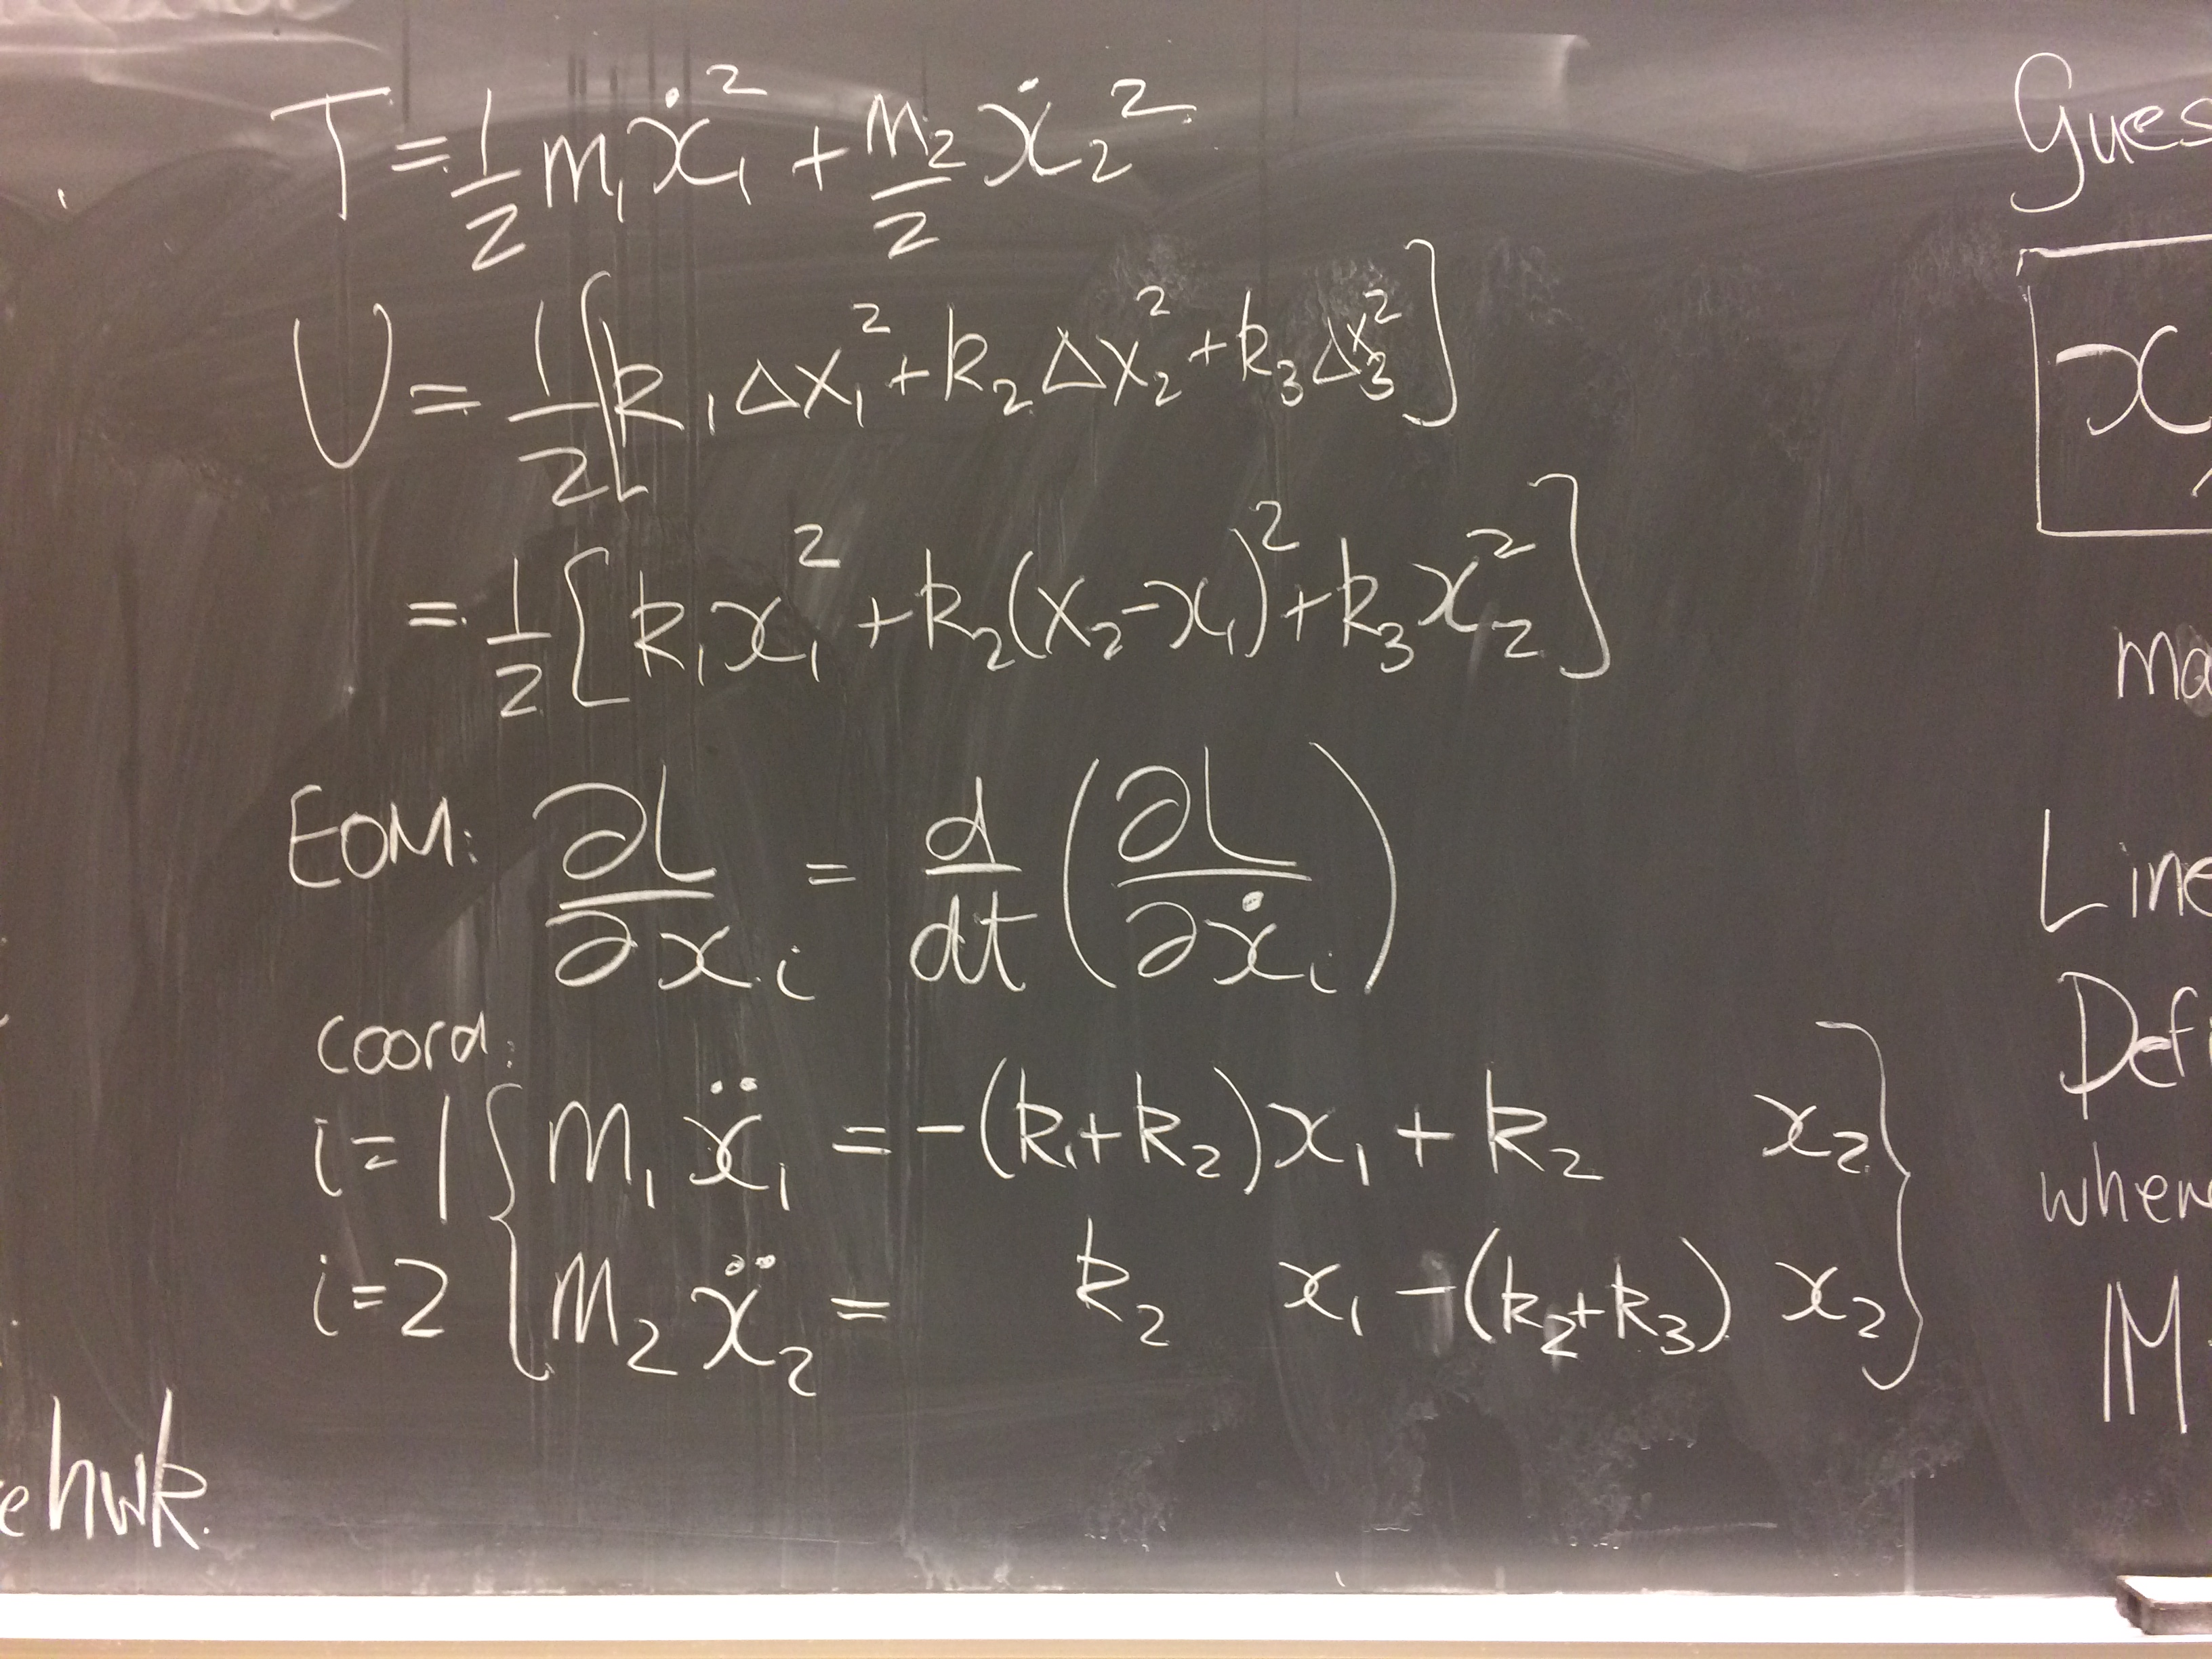 T = 1/2 m₁ẋ₁² + m₂/2 ẋ₂²
U = 1/2 [k₁Δx₁² + k₂Δx₂² + k₃Δx₃²]
= 1/2 [k₁x₁² + k₂(x₂-x₁)² + k₃x₂²]
EOM: ∂L/∂xᵢ = d/dt (∂L/∂ẋᵢ)
coord:
i=1 { m₁ẍ₁ = -(k₁+k₂)x₁ + k₂ x₂ }
i=2 { m₂ẍ₂ = k₂ x₁ -(k₂+k₃) x₂ }
hwk.
Gues
x
ma
Line
Defi
wher
M